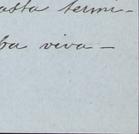 asta termi-
ba viva -